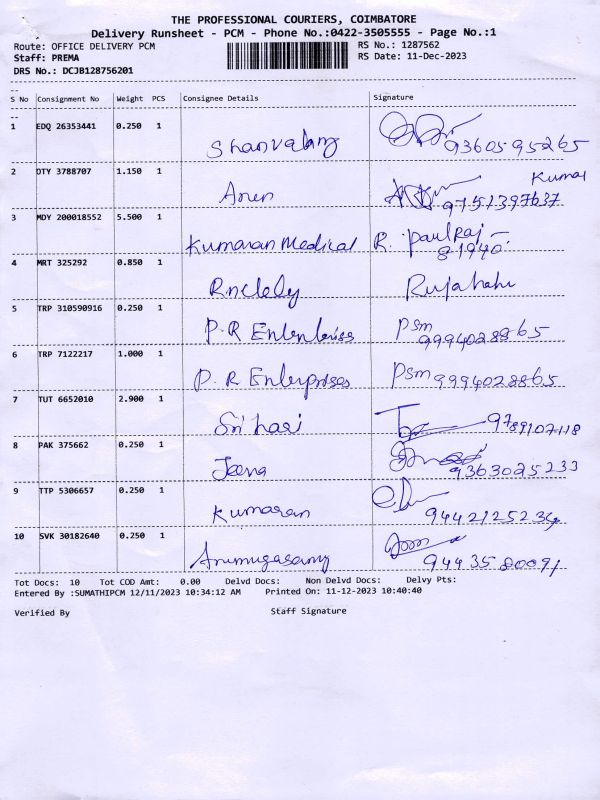 THE PROFESSIONAL COURIERS, COIMBATORE
Delivery Runsheet - PCM - Phone No.:0422-3505555 - Page No.:1
Route: OFFICE DELIVERY PCM RS No.: 1287562
Staff: PREMA RS Date: 11-Dec-2023
DRS No.: DCJB128756201
S No Consignment No Weight PCS Consignee Details Signature
1 EDQ 26353441 0.250 1
9360595265
2 OTY 3788707 1.150 1 Kumar
9751397637
3 MDY 200018552 5.500 1
Kumaran Medical R. Paulraj
81940
4 MRT 325292 0.850 1
5 TRP 310590916 0.250 1
P.R Psm 9994028865
6 TRP 7122217 1.000 1
P.R Enterprises Psm 9994028865
7 TUT 6652010 2.900 1
Sri hari 9789107118
8 PAK 375662 0.250 1
Jeena 9363025233
9 TTP 5306657 0.250 1
Kumaran 9442125234
10 SVK 30182640 0.250 1
Arumugasamy 9443580091
Tot Docs: 10 Tot COD Amt: 0.00 Delvd Docs: Non Delvd Docs: Delvy Pts:
Entered By :SUMATHIPCM 12/11/2023 10:34:12 AM Printed On: 11-12-2023 10:40:40
Verified By Staff Signature